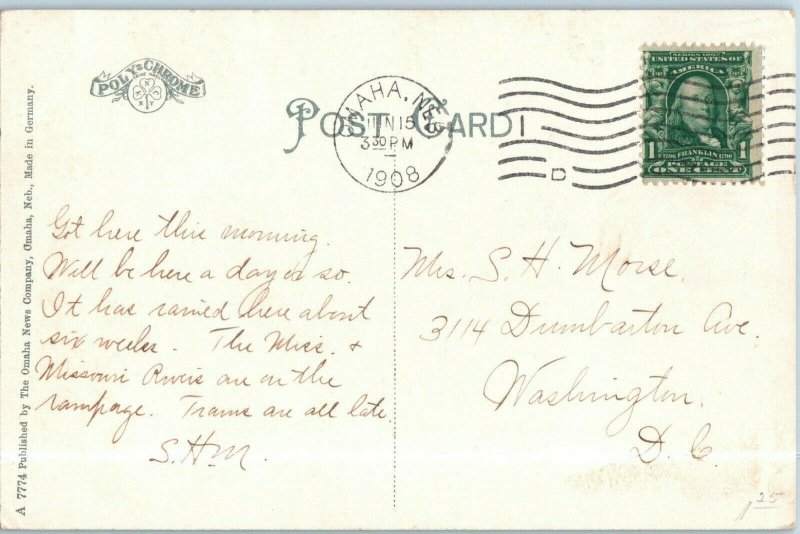 POLY-CHROME
POST CARD
OMAHA, NEB.
JUN 15
3 30 PM
1908
1
D
SERIES 1902
UNITED STATES OF
AMERICA
1706 FRANKLIN 1790
POSTAGE
1 ONE CENT
Got here this morning.
Will be here a day or so.
It has rained here about
six weeks. The Miss. &
Missouri Rivers are on the
rampage. Trains are all late.
S.H.M.
Mrs. S. H. Morse.
3114 Dumbarton Ave.
Washington,
D. C.
A 7774 Published by The Omaha News Company, Omaha, Neb., Made in Germany.
1 25